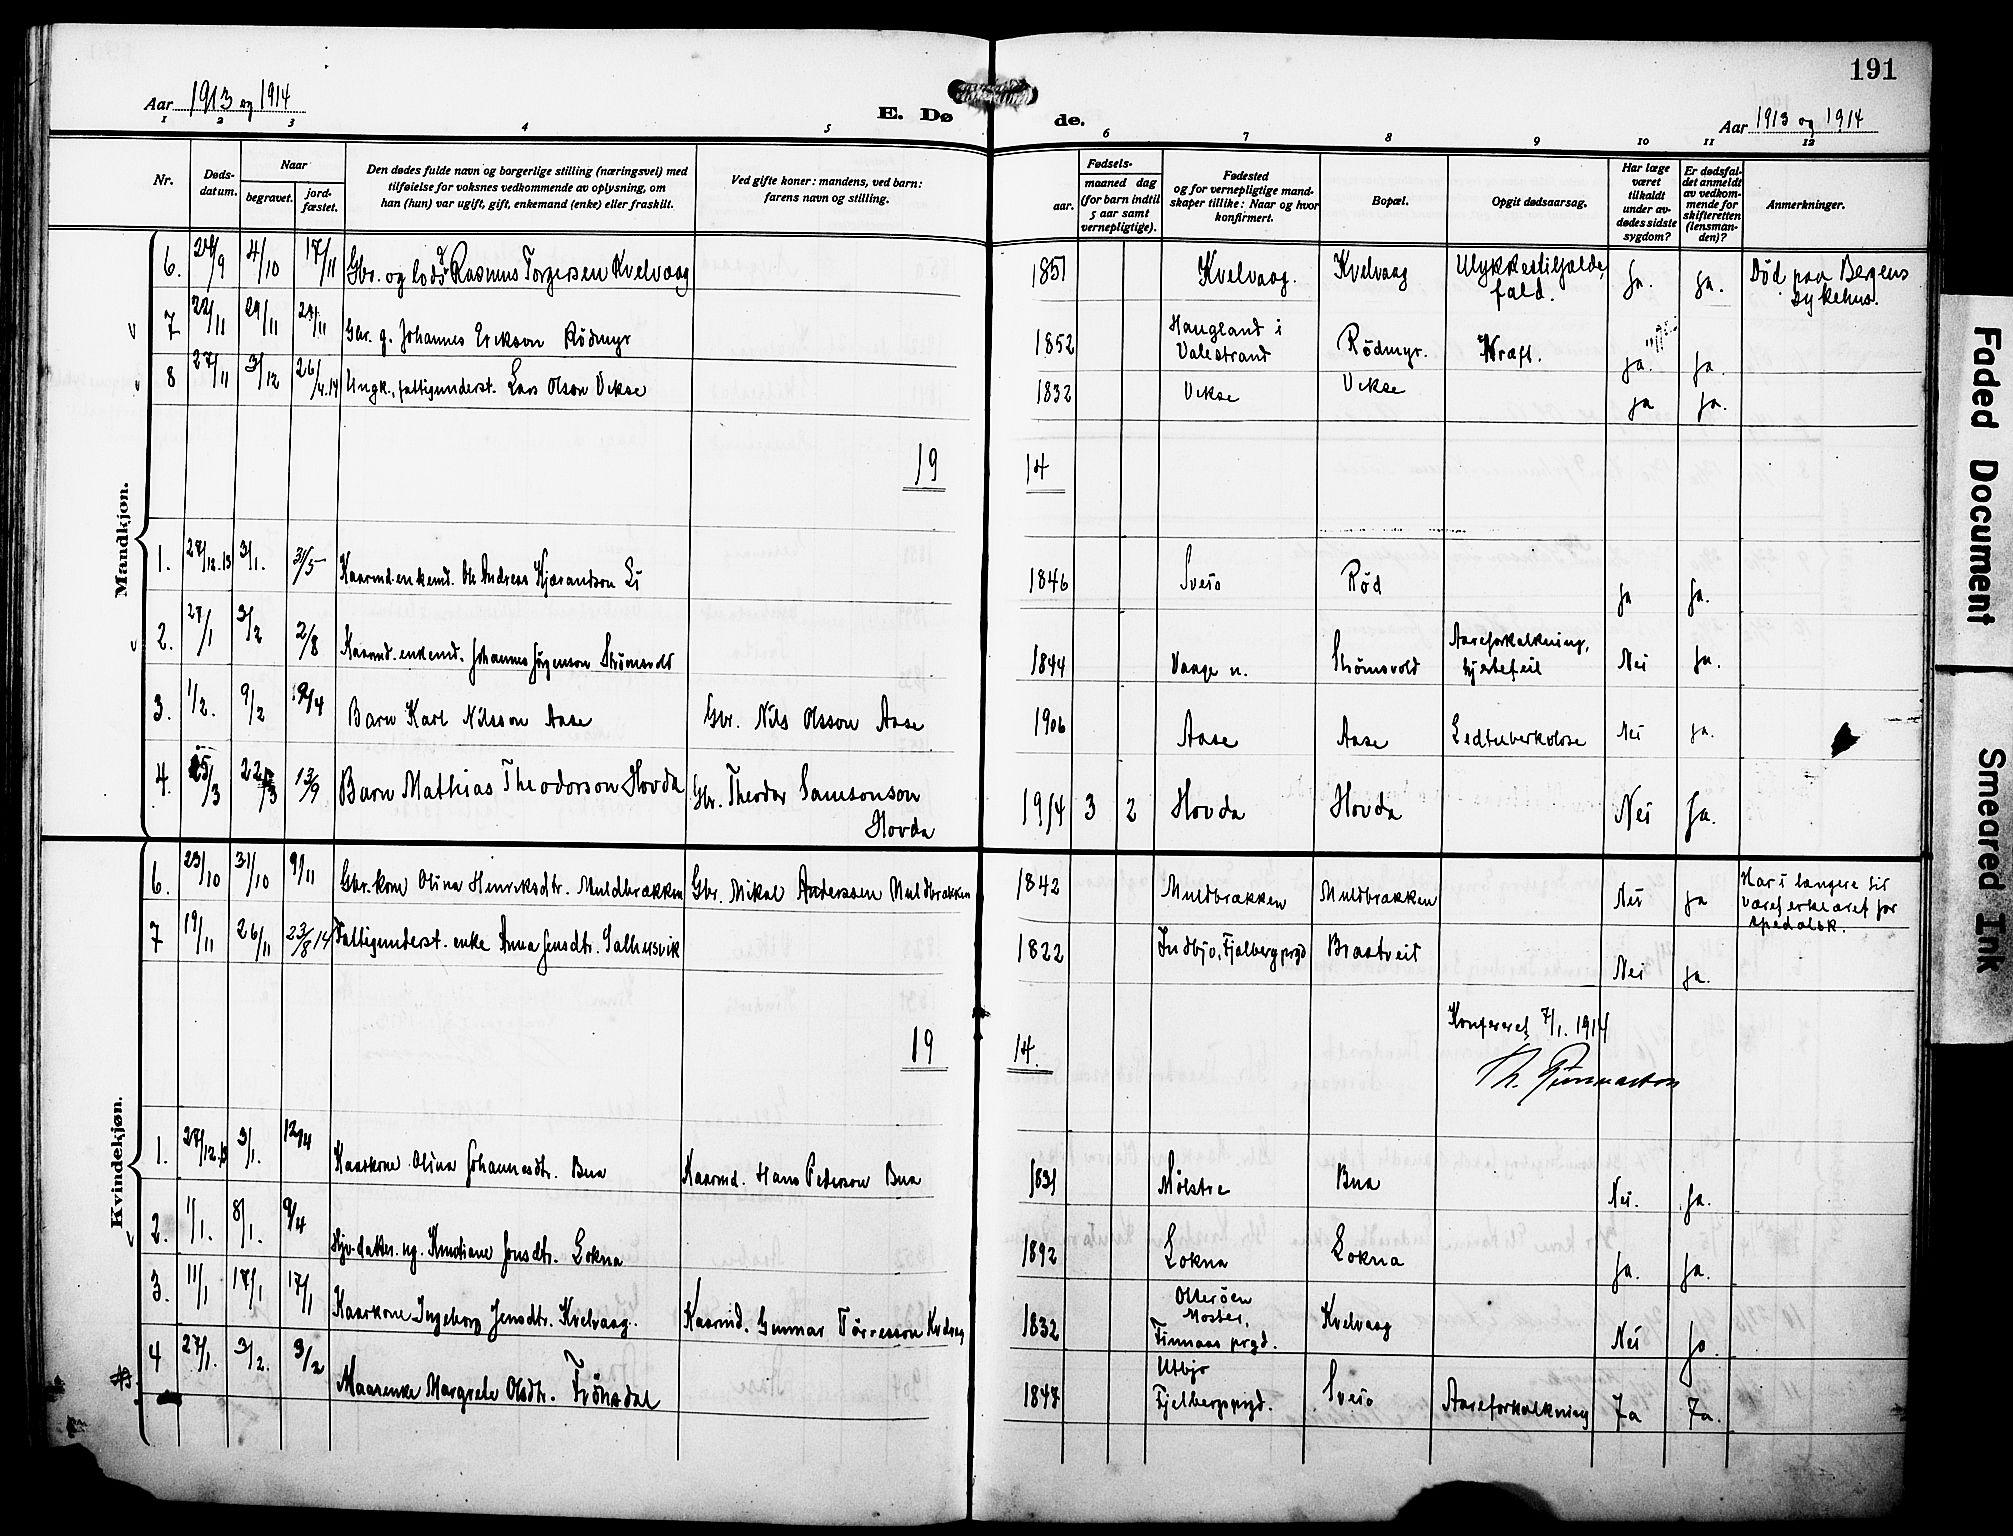 191
Aar 1913 og 1914
E. Dø
de.
Aar 1913 og 1914
1 2 3 4 5 6 7 8 9 10 11 12
Nr.
Døds-
datum.
Naar
begravet.
jord-
fæstet.
Den dødes fulde navn og borgerlige stilling (næringsvei) med
tilføielse for voksnes vedkommende av oplysning, om
han (hun) var ugift, gift, enkemand (enke) eller fraskilt.
Ved gifte koner: mandens, ved barn:
farens navn og stilling.
Fødsels-
aar.
maaned dag
(for barn indtil
5 aar samt
vernepligtige).
Fødested
og for vernepligtige mand-
skaper tillike: Naar og hvor
konfirmert.
Bopæl.
Opgit dødsaarsag.
Har læge
været
tilkaldt
under av-
dødes sidste
sygdom?
Er dødsfal-
det anmeldt
av vedkom-
mende for
skifteretten
(lensman-
den)?
Anmerkninger.
Mandkjøn.
6. 4/10 17/11 Gbr. og lods Rasmus Torgersen Kvelvaag 1851 Kvelvaag. Kvelvaag Ulykkestilfælde, fald. Ja. Ja. Død paa Bergens sykehus.
7 22/11 29/11 29/11 Gbr. g. Johannes Erikson Rödmyr 1852 Haugland i Valestrand Rödmyr. Kræft. Ja. Ja.
8 27/11 3/12 26/4.14 Ungk., fattigunderst. Lars Olson Vikse 1832 Vikse Vikse Ja Ja.
19 14
1. 28/12.13 3/1. 31/5 Kaarmd. enkemd. Ole Andreas Kjærandson Li 1846 Sveio Röd Ja Ja.
2. 27/1 3/2 2/8 Kaarmd. enkemd. Johannes Jörgenson Strömsvold 1844 Vaage n. Strömsvold Aareforkalkning, hjertefeil Nei Ja.
3. 1/2. 9/2 19/4 Barn Karl Nilsson Aase Gbr. Nils Olsson Aase 1906 Aase Aase Ledtuberkulose Nei Ja.
4. 15/3 22/3 13/9 Barn Mathias Theodorson Hovda Gbr. Theodor Samsonson Hovda 1914 3 2 Hovda Hovda Nei Ja.
Kvindekjøn.
6. 23/10 31/10 9/11 Gbr. kone Olina Henriksdtr. Muldbrækken Gbr. Mikal Anderssen Muldbrækken 1842 Muldbrækken Muldbrækken Nei Ja Har i længere tid været erklæret for spedalsk.
7 19/11 26/11 23/8 14 Fattigunderst. enke Anna Jensdtr. 1822 Indbjo, Fjelberg prgd Braatveit Nei Ja.
19 14.
Konfereret 7/1. 1914
1. 28/12.13 3/1. 12/4 Kaarkone Olina Johannesdtr. Bua Kaarmd. Hans Pederson Bua 1831 Mölstre Bua Nei. Ja.
2. 1/1. 8/1. 9/4 Hjv. datter. ug. Knutiane Jonsdtr. Lokna 1892 Lokna Lokna Ja. Ja.
3. 11/1 17/1 17/1 Kaarkone Ingeborg Jensdtr. Kvelvaag. Kaarmd. Gunnar Törresson Kvelvag 1832 Otteröen Moster, Finnaas prgd. Kvelvaag Nei Ja
4 27/1. 3/2. 3/2 Kaarenke Margrete Olsdtr. Trönsdal 1847 Utbjo Fjelbergs prgd. Sveio Aareforkalkning Ja Ja.
Faded Document
Smeared Ink